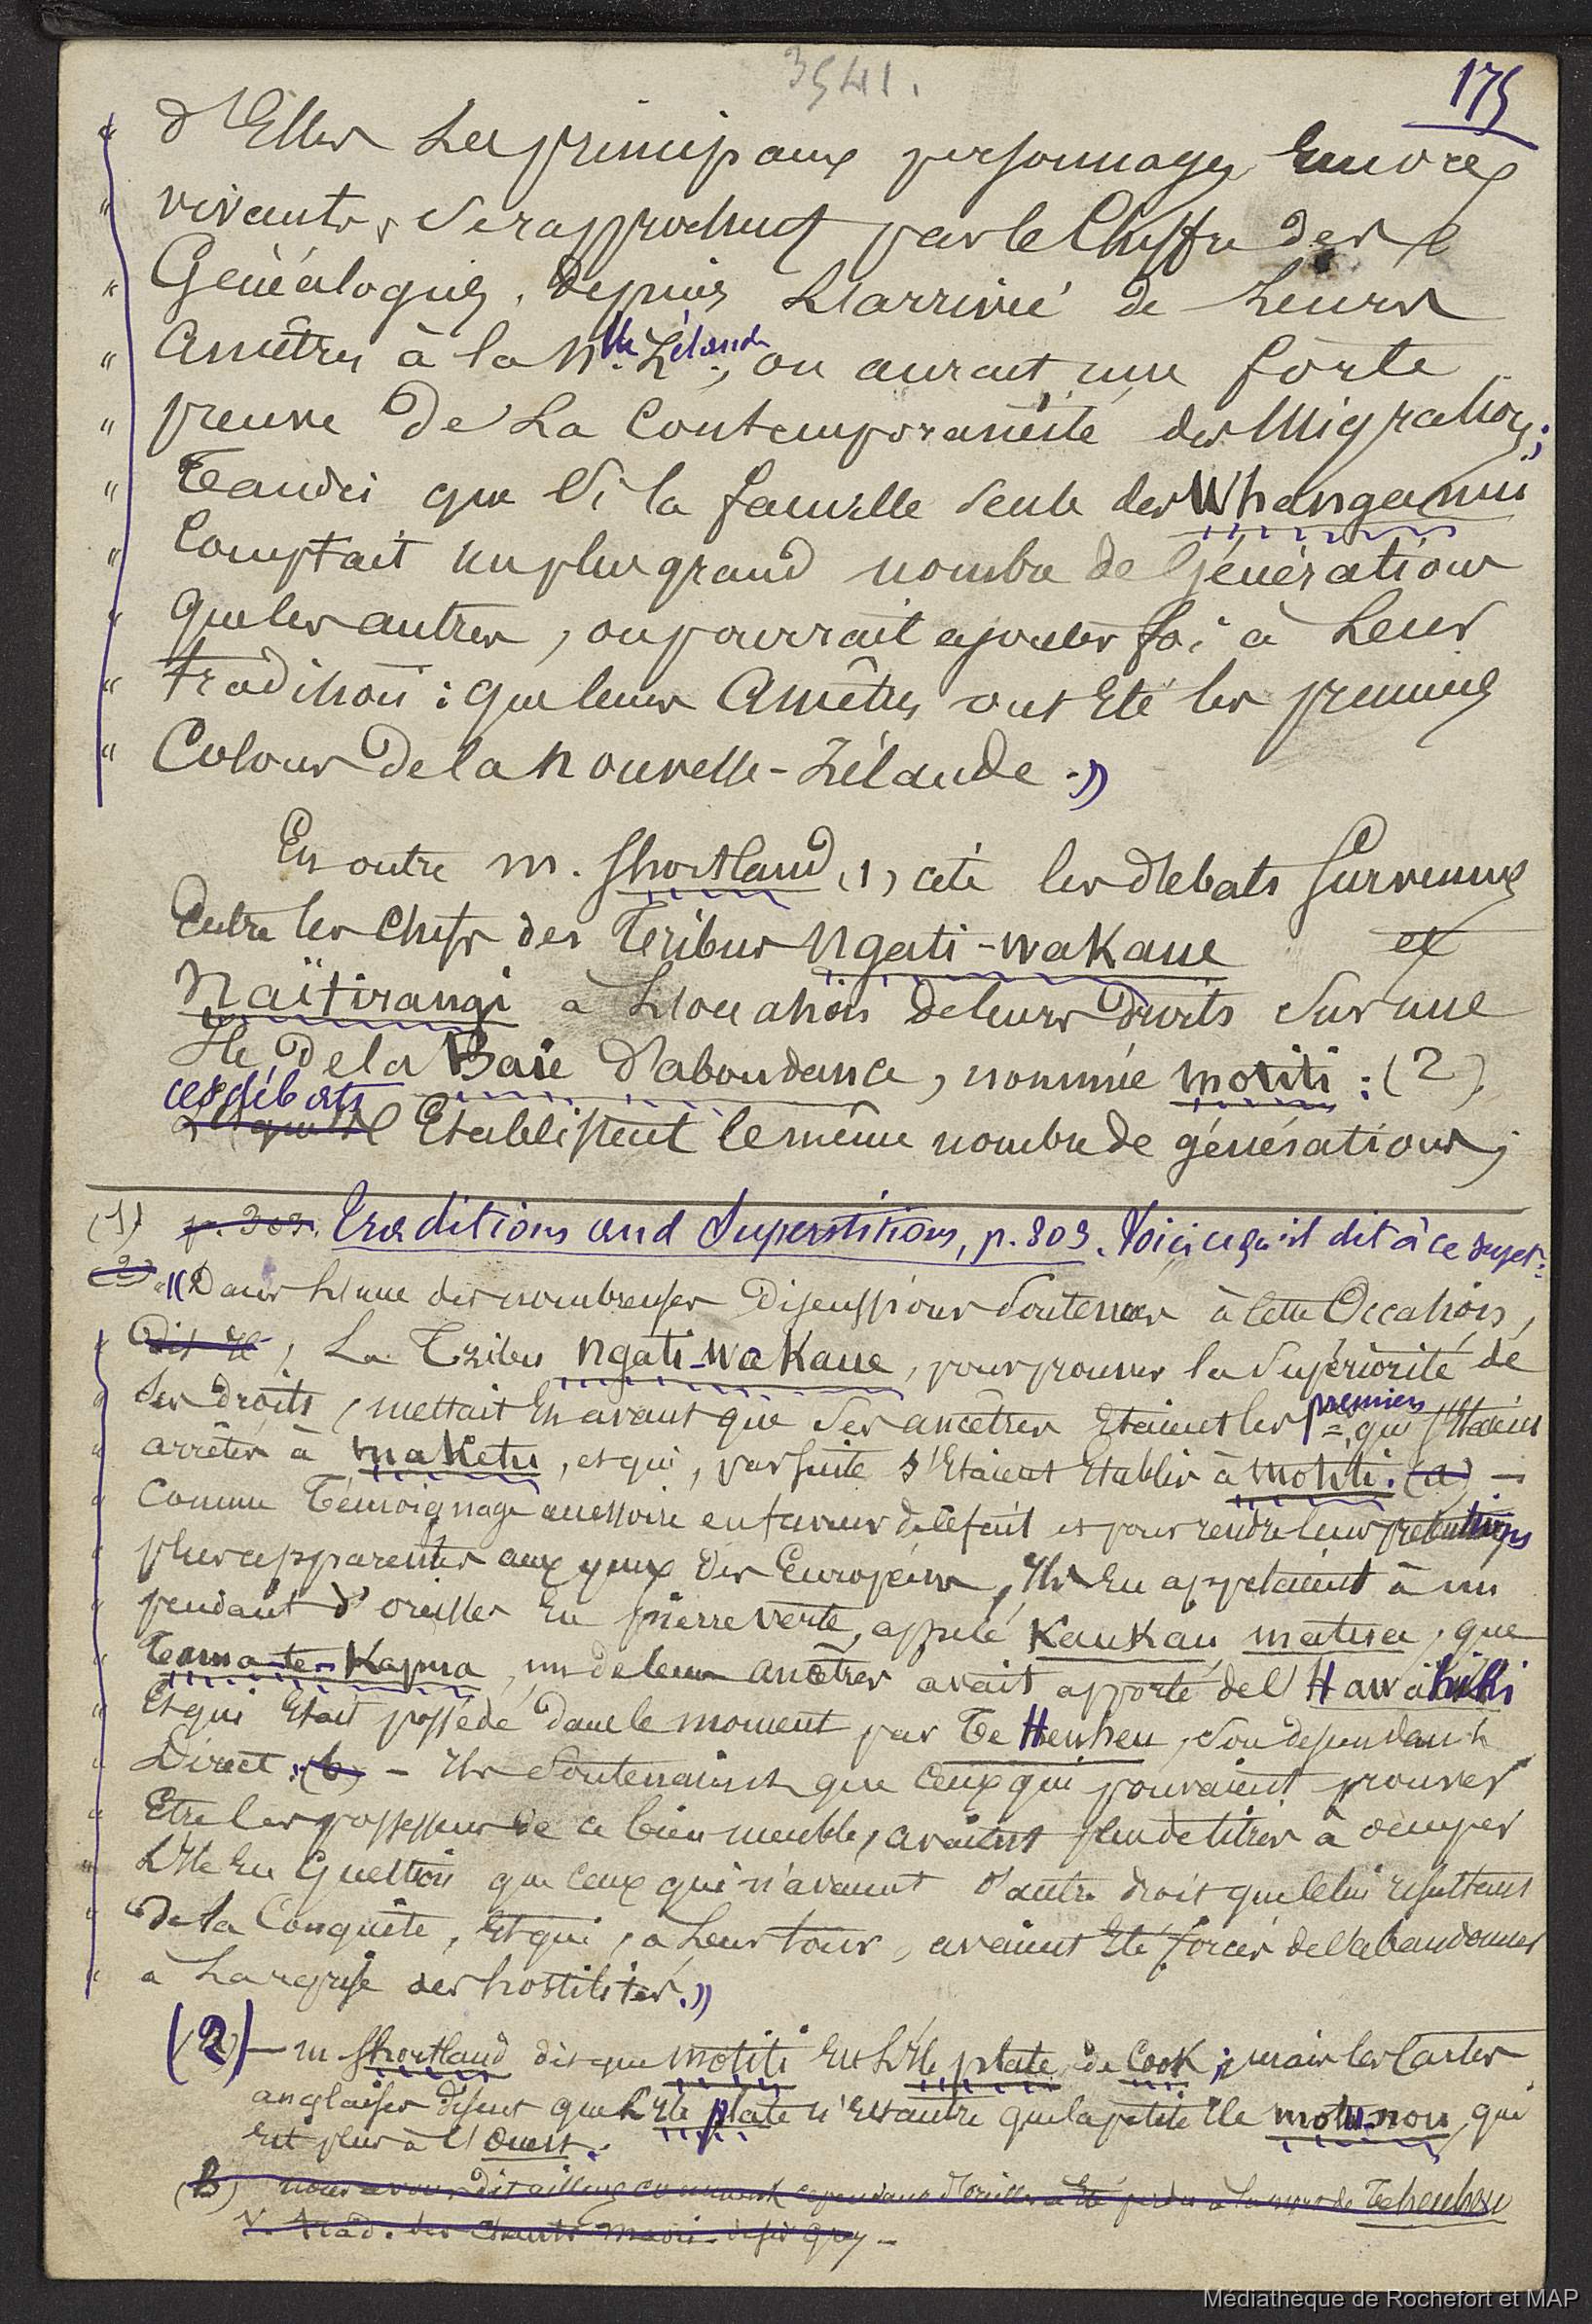 3541.
175
« d'Elles les principaux personnages encore
« vivants, se rapprochent par le Chiffre des
« Généalogies, depuis l'arrivée de leurs
« Ancêtres à la Nlle Zélande, on aurait une forte
« preuve de la Contemporanéité des Migrations;
« Tandis que si la famille seule des Whanganui
« Comptait un plus grand nombre de Générations
« que les autres, on pourrait ajouter foi à leur
« tradition : que leurs Ancêtres ont Eté les premiers
« Colons de la Nouvelle-Zélande. »
En outre M. Shortland (1) cite les débats survenus
Entre les Chefs des Tribus Ngati-waKaue et
Naïtirangi à l'occasion de leurs Droits sur une
Ile de la Baie d'abondance, nommée Motiti : (2)
ces débats
Etablissent le même nombre de générations;
(1) p. 303. Traditions and Superstitions, p. 303. Voici ce qu'il dit à ce sujet :
(2) « Dans l'une des nombreuses Discussions soutenues à cette Occasion,
« Dit-il, La Tribu Ngati-WaKaue, pour prouver la supériorité de
« ses droits, mettait En avant que ses ancêtres Etaient les premiers qui s'Etaient
« arrêtés à MaKetu, et qui, par suite s'Etaient Etablis à Motiti. (a) —
« Comme Témoignage accessoire en faveur de ce fait et pour rendre leurs prétentions
« plus apparentes aux yeux des Européens, Ils En appelaient à un
« pendant d'oreilles En pierre verte, appelé KauKau matua, que
« Tama-te-Kapua, un de leurs Ancêtres avait apporté de l'Hawahiki
« Et qui Etait possédé dans le moment par Te Heuheu, son descendant
« Direct; (b) — Ils Soutenaient que Ceux qui pouvaient prouver
« Etre les possesseurs de ce bien meuble, avaient plus de titres à occuper
« L'Ile En Question que ceux qui n'avaient d'autre droit que celui résultant
« De la Conquête, Et qui, à Leur tour, avaient Eté forcés de l'abandonner
« à La reprise des hostilités. »
(2) — M Shortland dit que Motiti Est L'Ile plate de Cook; mais les Cartes
anglaises disent que L'Ile plate n'Est autre que la petite île Motu-nou, qui
Est plus à l'Ouest.
(b) nous avons dit ailleurs comment ce pendant d'oreilles a Eté perdu à la mort de Te heuheu
V. Trad. des Chants Maori de sir Grey —
Médiathèque de Rochefort et MAP